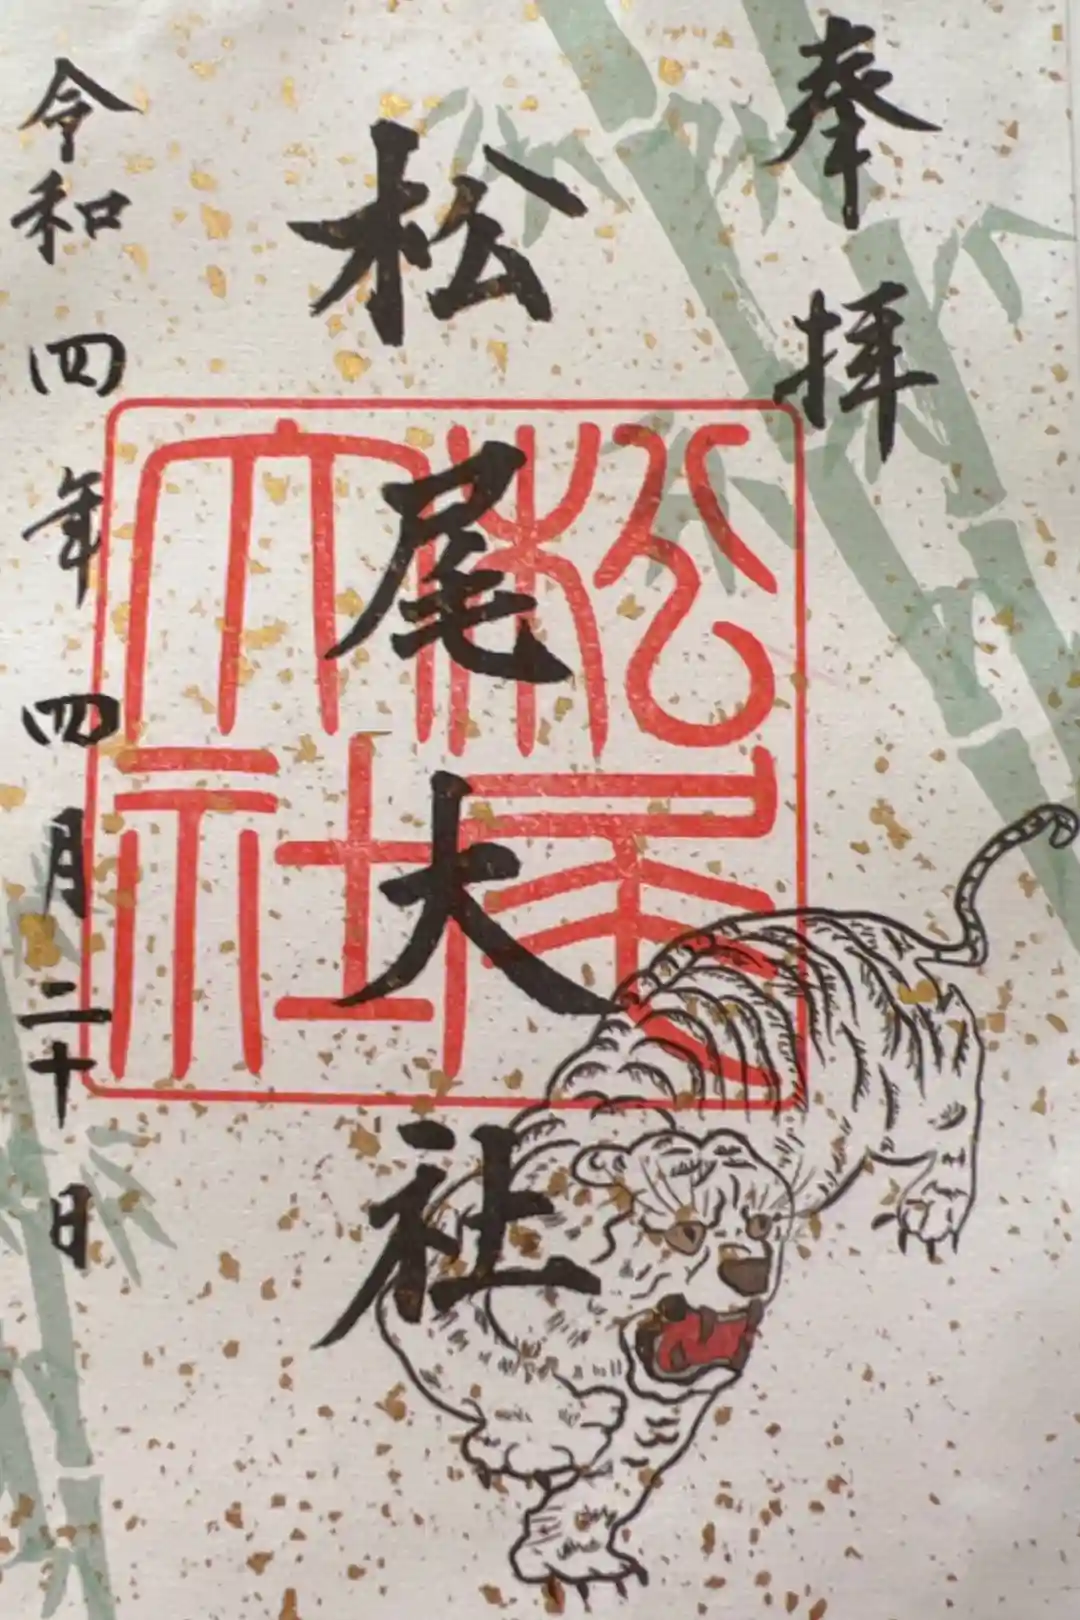 奉拝
松尾大社
松尾大社
令和四年四月二十日